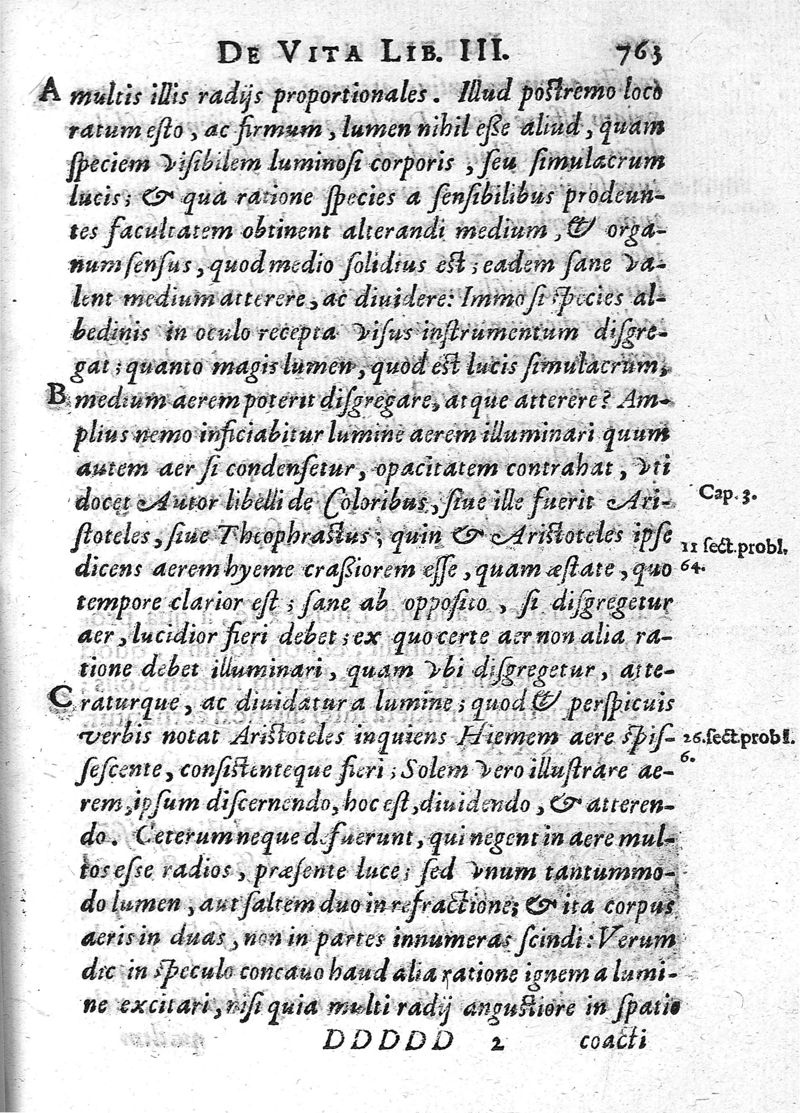 DE VITA LIB. III. 763
A multis illis radijs proportionales. Illud postremo loco
ratum esto, ac firmum, lumen nihil esse aliud, quam
speciem visibilem luminosi corporis, seu simulacrum
lucis; & qua ratione species a sensibilibus prodeun-
tes facultatem obtinent alterandi medium, & orga-
num sensus, quod medio solidius est; eadem sane va-
lent medium atterere, ac diuidere: Immo si species al-
bedinis in oculo recepta visus instrumentum disgre-
gat; quanto magis lumen, quod est lucis simulacrum,
B medium aerem poterit disgregare, atque atterere? Am-
plius nemo inficiabitur lumine aerem illuminari quum
autem aer si condensetur, opacitatem contrahat, vti
docet Autor libelli de Coloribus, siue ille fuerit Ari- Cap. 3.
stoteles, siue Theophrastus; quin & Aristoteles ipse 11 sect. probl.
dicens aerem hyeme crassiorem esse, quam æstate, quo 64.
tempore clarior est; sane ab opposito, si disgregetur
aer, lucidior fieri debet; ex quo certe aer non alia ra-
tione debet illuminari, quam vbi disgregetur, atte-
C raturque, ac diuidatur a lumine; quod & perspicuis
verbis notat Aristoteles inquiens Hiemem aere spis- 26. sect. probl.
sescente, consistenteque fieri; Solem vero illustrare ae- 6.
rem, ipsum discernendo, hoc est, diuidendo, & atteren-
do. Ceterum neque defuerunt, qui negent in aere mul-
tos esse radios, præsente luce; sed vnum tantummo-
do lumen, aut saltem duo in refractione; & ita corpus
aeris in duas, non in partes innumeras scindi: Verum
dic in speculo concauo haud alia ratione ignem a lumi-
ne excitari, nisi quia multi radij angustiore in spatio
DDDDD 2 coacti